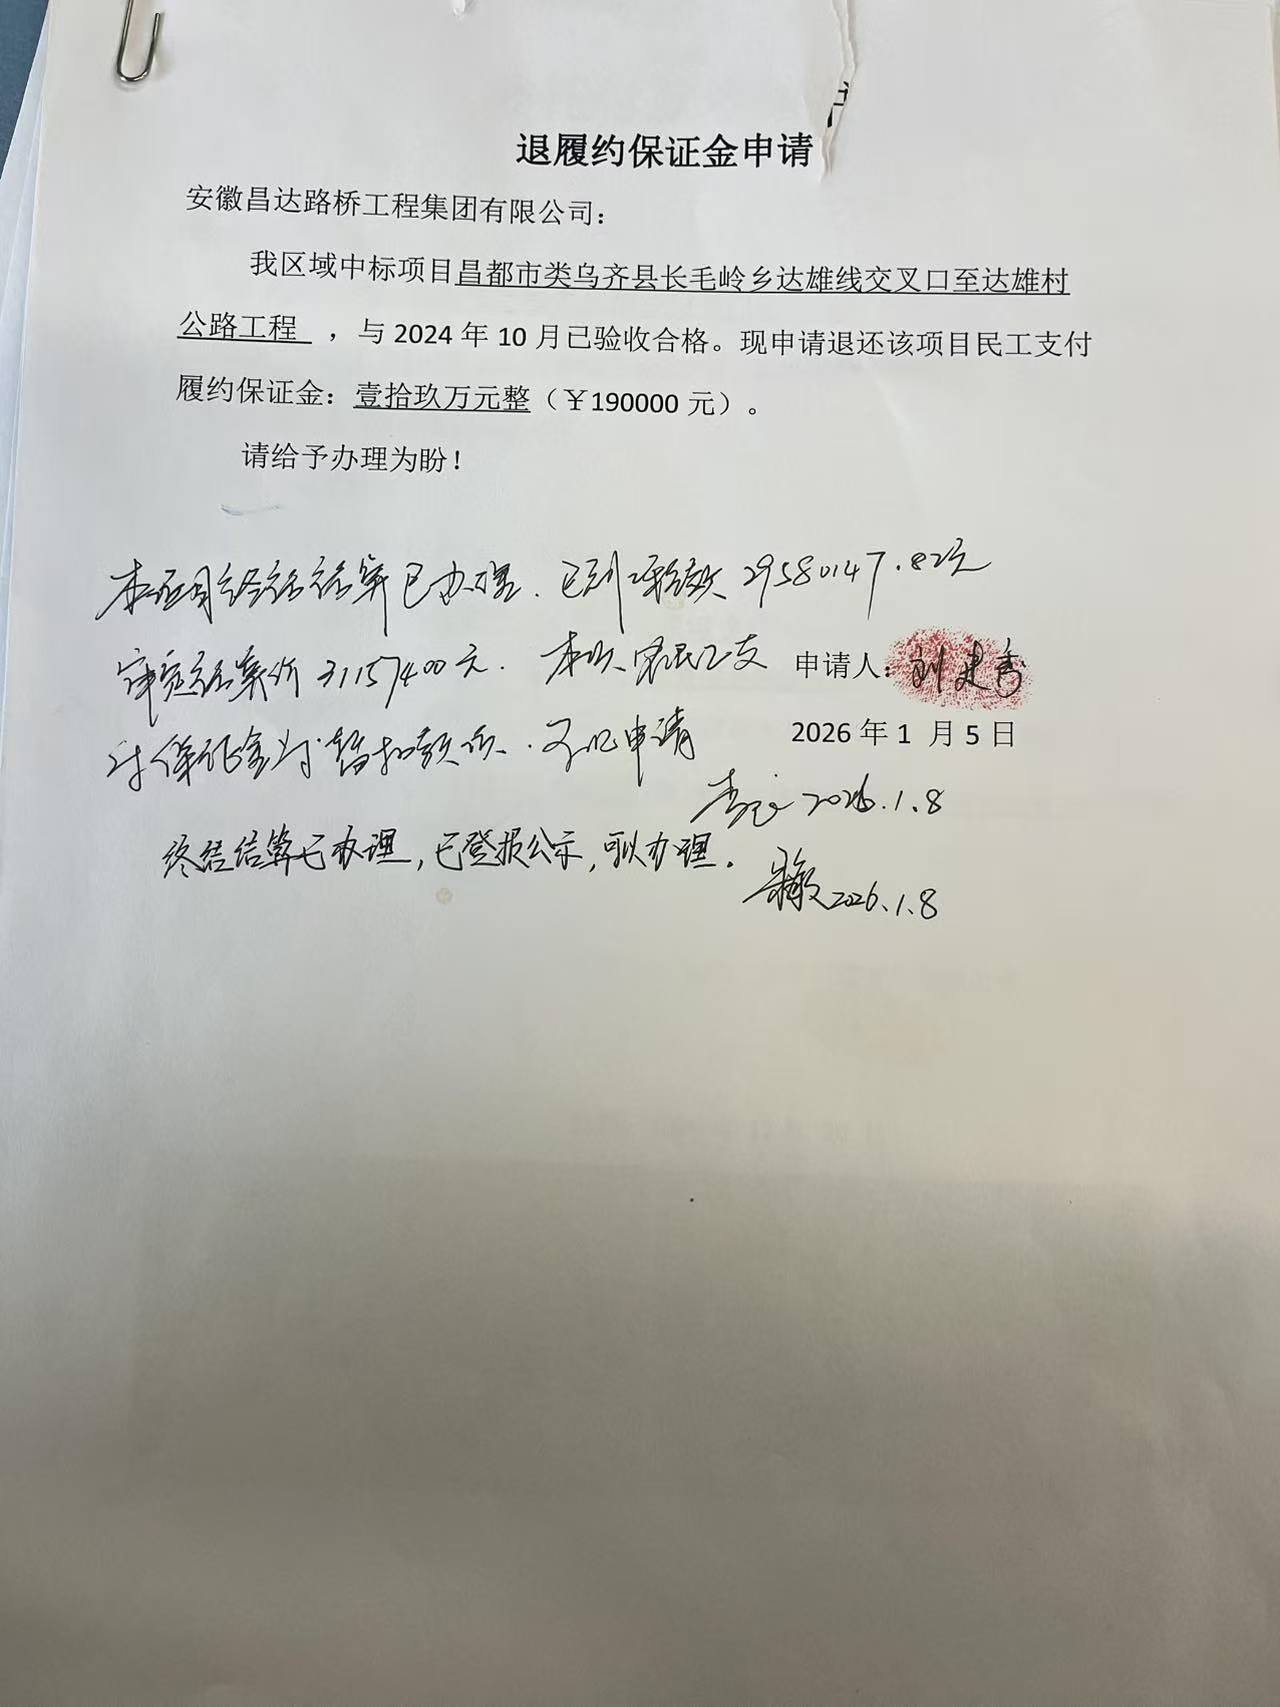 退履约保证金申请
安徽昌达路桥工程集团有限公司：
我区域中标项目昌都市类乌齐县长毛岭乡达雄线交叉口至达雄村
公路工程 ，与 2024 年 10 月已验收合格。现申请退还该项目民工支付
履约保证金：壹拾玖万元整（￥190000 元）。
请给予办理为盼！
本项目终结结算已办理．已到账款 29580147.82元
审定结算价 31157400元． 本次农民工支
付保证金为暂扣款项．可以申请
申请人：刘建秀
2026 年 1 月 5 日
2026.1.8
终结结算已办理，已登报公示，可以办理．
2026.1.8